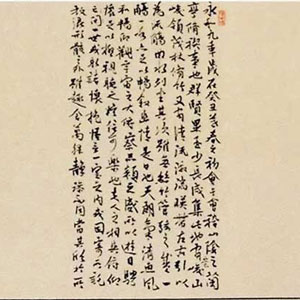 永和九年歲在癸丑暮春之初會于會稽山陰之蘭
亭脩稧事也群賢畢至少長咸集此地有
領茂林脩竹又有清流激湍映帶左右引以
為流觴曲水列坐其次雖無絲竹管弦之盛一
觴一詠亦足以暢敘幽情是日也天朗氣清惠風
和暢仰觀宇宙之大俯察品類之盛所以遊目騁
懷足以極視聽之娛信可樂也夫人之相與俯仰
一世或取諸懷抱悟言一室之內或因寄所託
放浪形骸之外雖趣舍萬殊靜躁不同當其欣於所